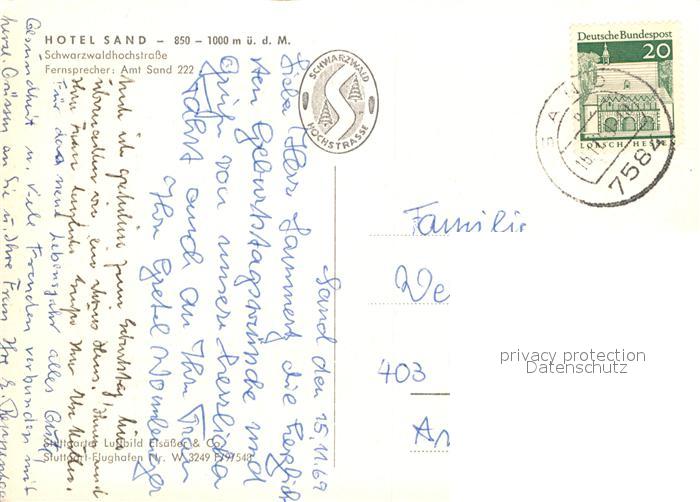 HOTEL SAND – 850 – 1000 m ü. d. M.
Schwarzwaldhochstraße
Fernsprecher: Amt Sand 222
SCHWARZWALD
HOCHSTRASSE
Deutsche Bundespost
20
LORSCH/HESSEN
SAND
7584
Sand den 15.11.69
Liebe Herr Lammert die herzlich
sten Geburtstagswünsche und
Grüße von unsere herrlichen
Fahrt auch an Ihre Frau
Ihre Gretel
Auch ich gratuliere zum Geburtstag,
Ihnen und
Ihrer Frau herzliche
Für das neue Lebensjahr alles Gute,
Gesundheit u. viele Freuden verbunden mit
herzl. Grüßen an Sie u. Ihre Frau Ihr
Familie
We
403
Stuttgarter Luftbild Elsäßer & Co.
Stuttgart-Flughafen Nr. W 3249 F 9/7548
privacy protection
Datenschutz